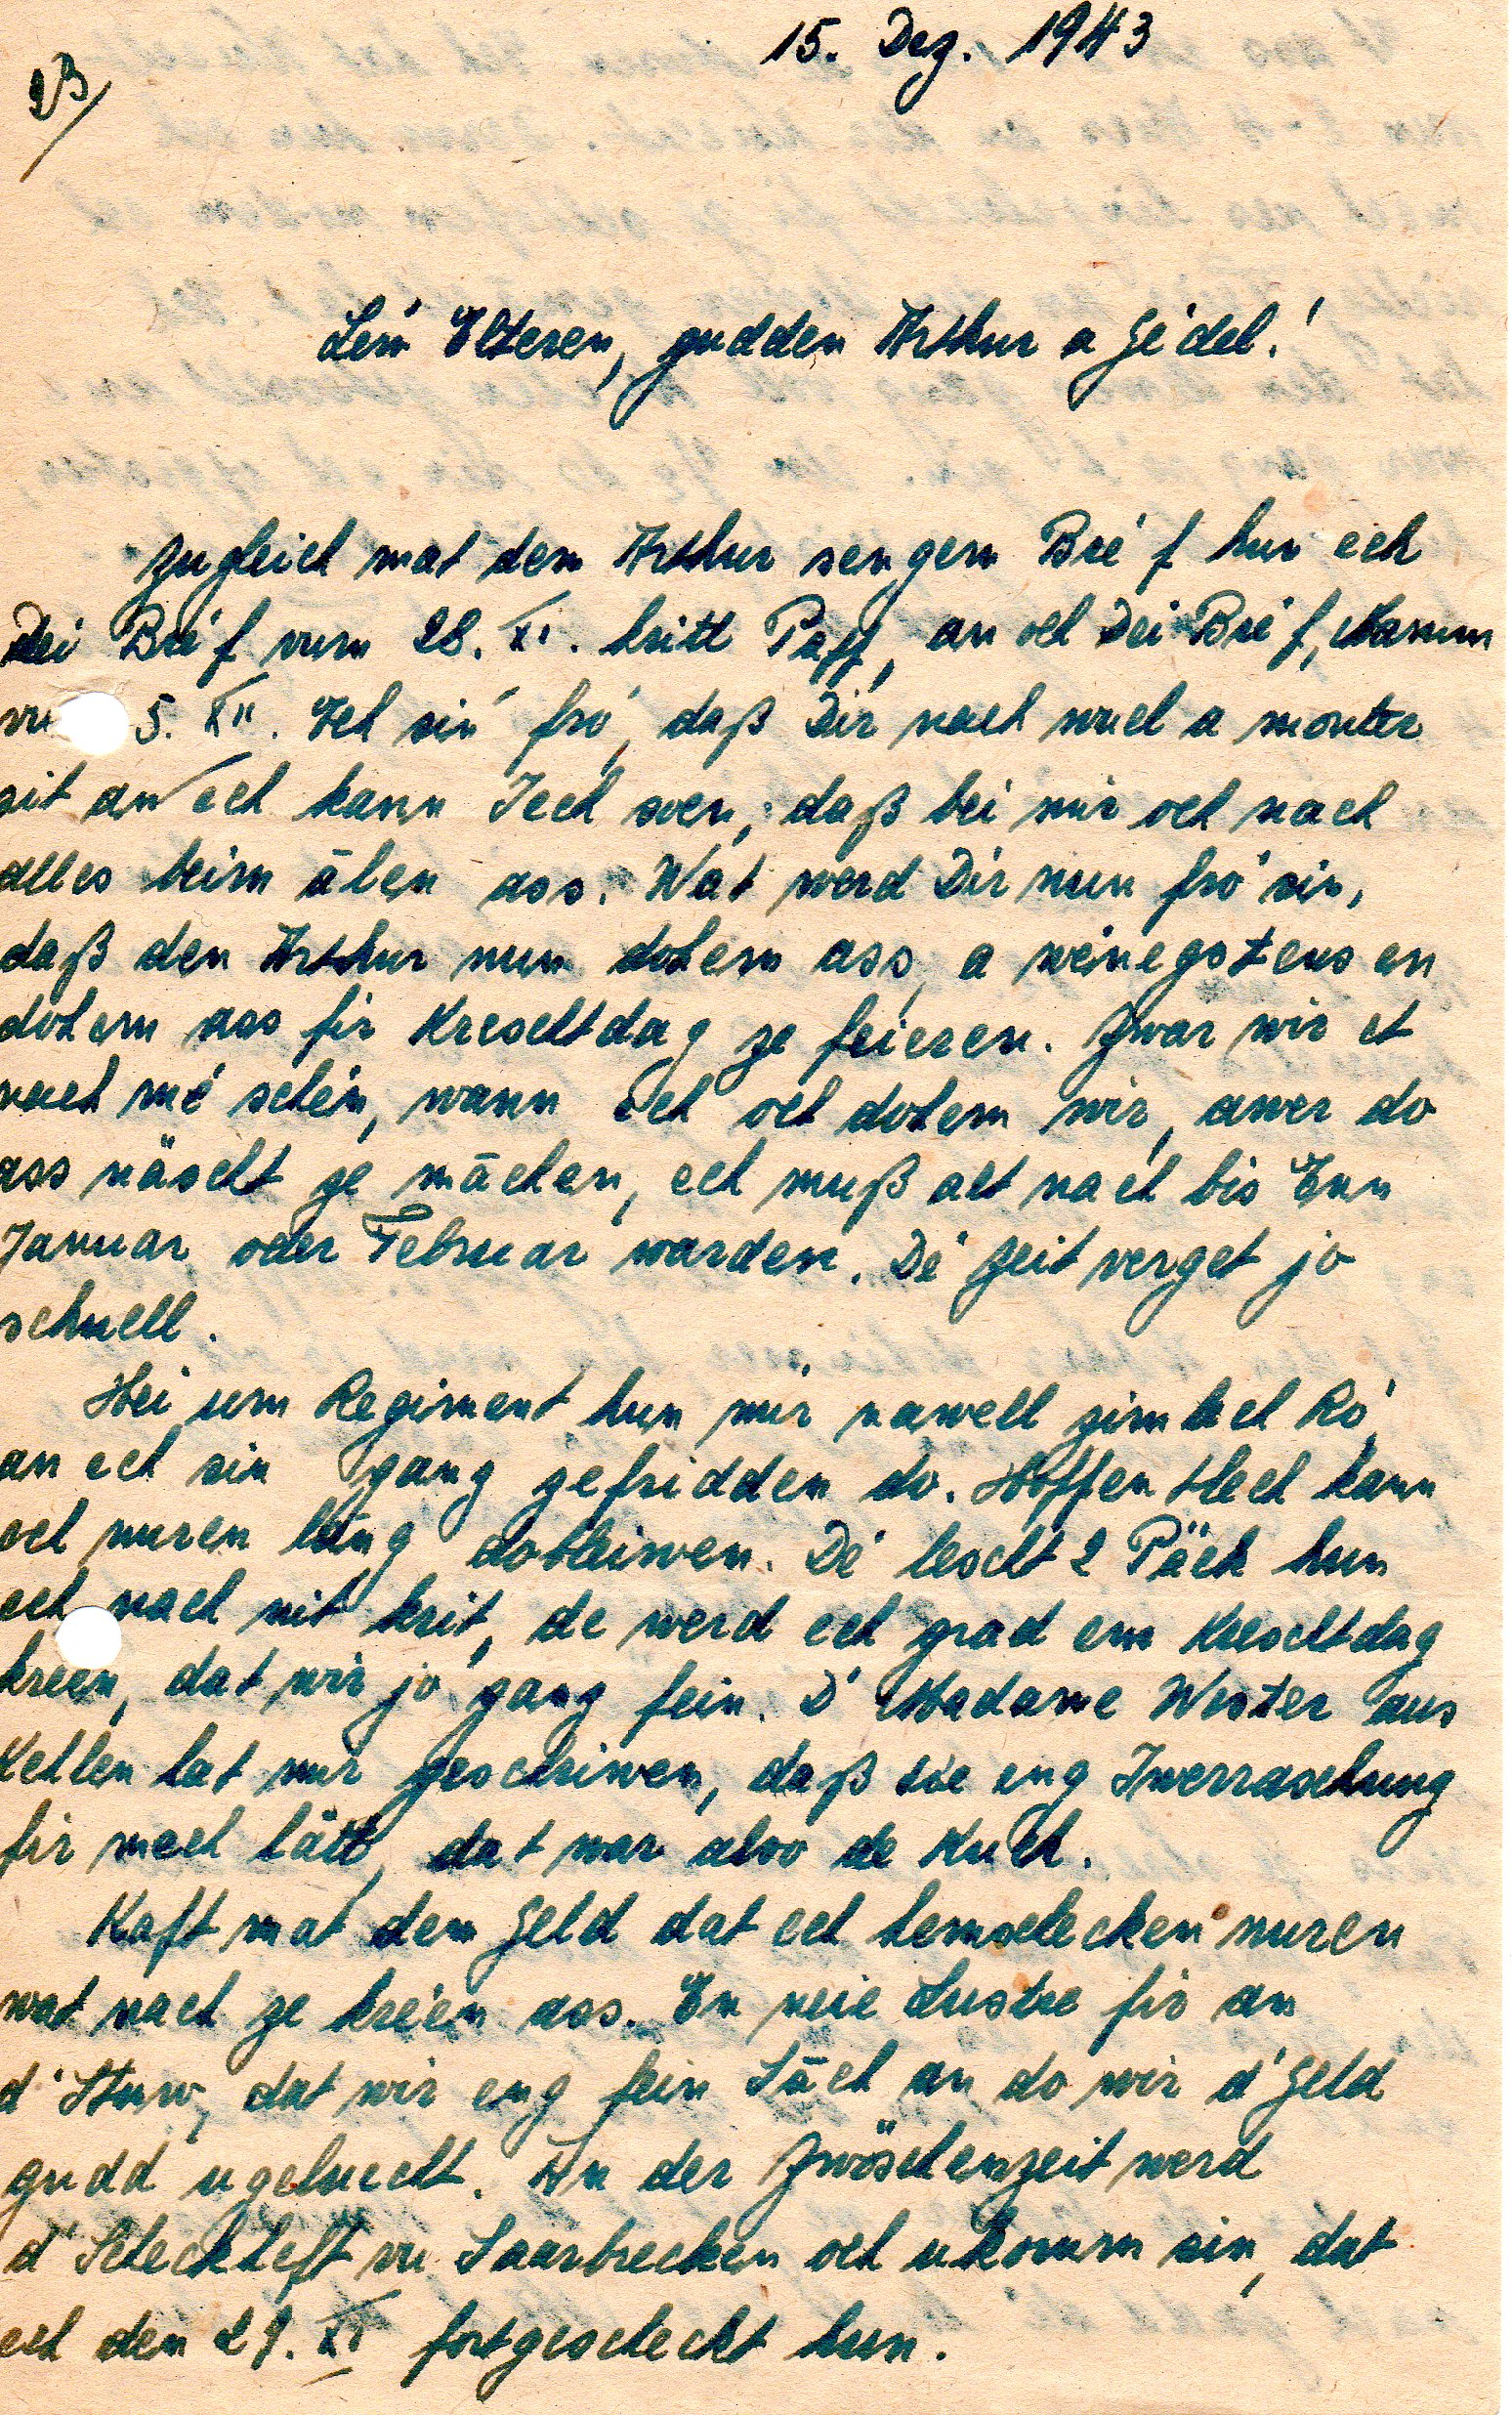 15. Dez. 1943
23/
Léif Elteren, gudden Arthur a Gédel!
Zugleich mat dem Arthur sengem Bréf hun ech
Dei Bréf vum 28. XI. kritt Papp, an och Dei Bréf, Mamm
vu 5. XII. Ech sin fró, daß Dir nach wuel a monter
sit an ech kann Iech soen, daß bei mir och nach
alles beim ālen ass. Wat werd Dir nun fró sin,
daß den Arthur nun dohem ass, a wéinegstens en
dohem ass fir Kreschtdag ze feieren. Zwar wir et
nach mé schén, wann ech och dohem wir, awer do
ass näscht ze māchen, ech muß alt nach bis Enn
Januar oder Februar warden. Dé Zeit verget jo
schnell.
Hei um Regiment hun mir nawell zimlech Ró,
an ech sin ganz zefridden do. Hoffentlech kann
ech nuren lāng dobleiwen. Dé lescht 2 Päck hun
ech nach nit krit, de werd ech grad em Kreschtdag
kréen, dat wir jo ganz fein. D'Madame Wester aus
Kehlen hat mir geschriwen, daß sie eng Iwerraschung
fir mech hätt, dat war also de Kuch.
Kaft mat dem Geld dat ech hemschecken nuren
wat nach ze kréen ass. En neie Lustre fir an
d'Stuw, dat wir eng fein Sāch an do wir d'Geld
gudd ugeluecht. An der Zwöschenzeit werd
d'Scheckheft vu Saarbrecken och ukomm sin, dat
ech den 29. XI fortgescheckt hun.